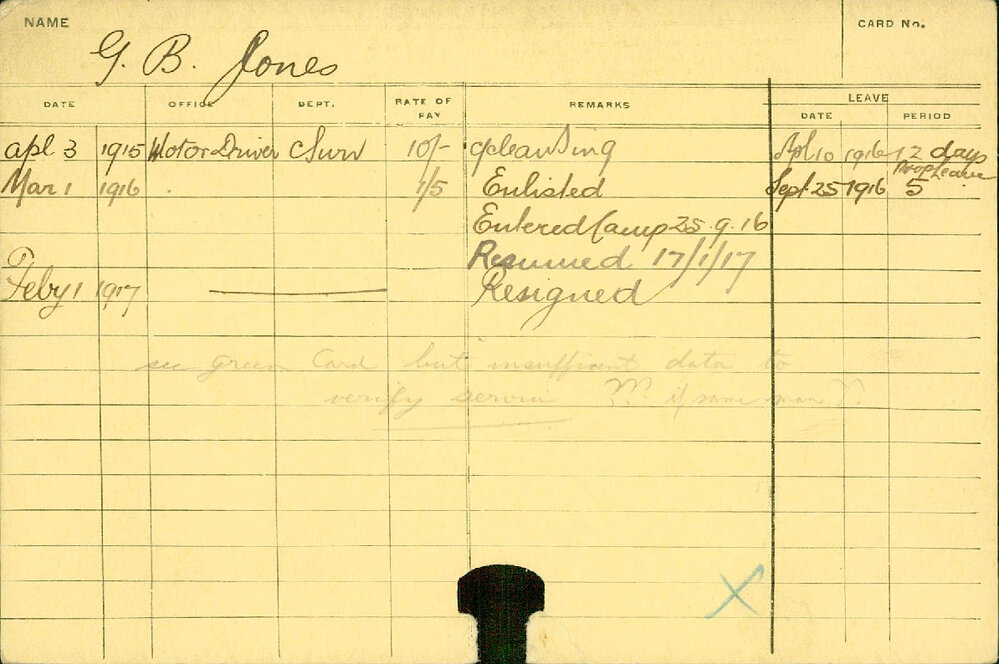 NAME
CARD No.
G. B. Jones
DATE OFFICE DEPT. RATE OF PAY REMARKS LEAVE
DATE PERIOD
Apl 3 1915 Motor Driver C Surv 10/- Cleansing Apl 10 1916 12 days
Prop Leave
Mar 1 1916 . 1/5 Enlisted Sept. 25 1916 5
Entered Camp 25.9.16
Resumed 17/1/17
Feby 1 1917 Resigned
see green Card but insufficient data to
verify service ?? if same man ??
X